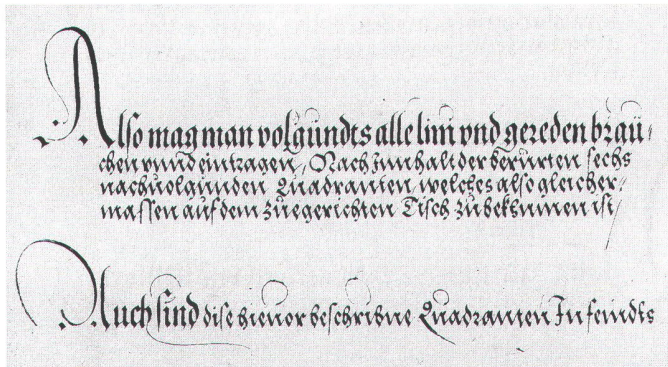 Also mag man volgundts alle lini vnd gereden brau-
chen vnnd eintragen, Nach Innhalt der berürten sechs
nachuolgunden Quadranten, welches also gleicher-
massen auf dem zuegerichten Tisch zubekhumen ist/
Auch sind dise hieuor beschribne Quadranten In feindts